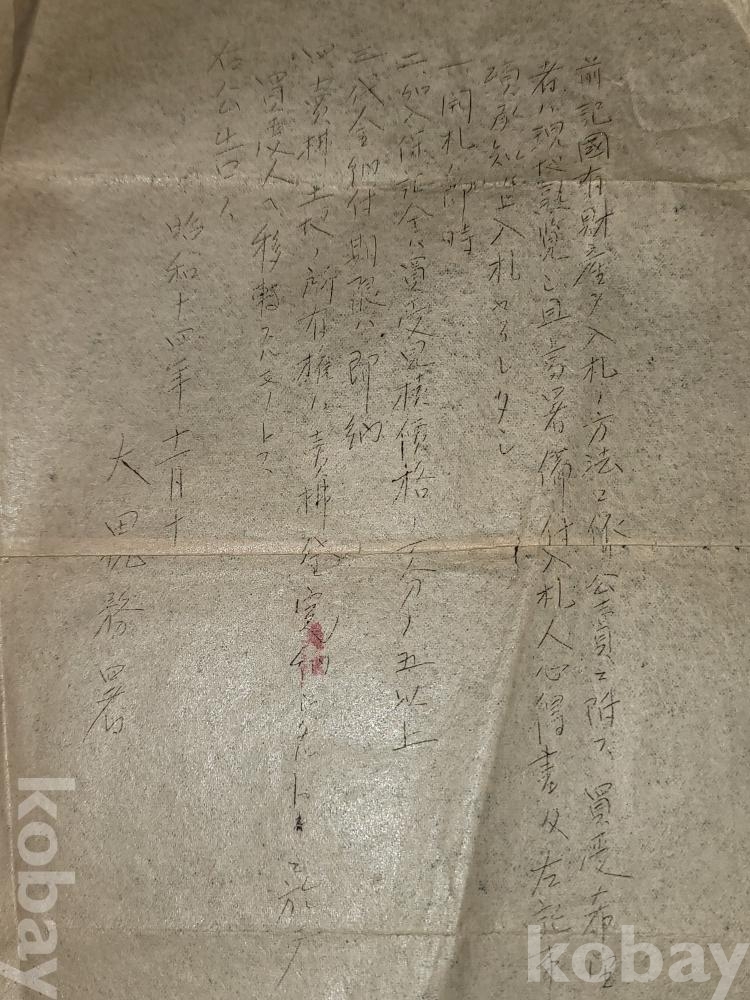 前記國有財産ヲ入札ノ方法ニ依公賣ニ附ス 買受希望
者ハ現地熟覽シ且當署備付入札人心得書及左記事
項承知ノ上入札セラレタシ
一、開札ハ即時
二、加入保証金ハ買受見積價格ノ百分ノ五以上
三、代金納付期限ハ即納
四、賣拂土地ノ所有權ハ賣拂代金完納シタルトキニ於テ
買受人ヘ移轉スルモノトス
右公告ス
昭和十四年十一月十
大 税務署
kobay
kobay